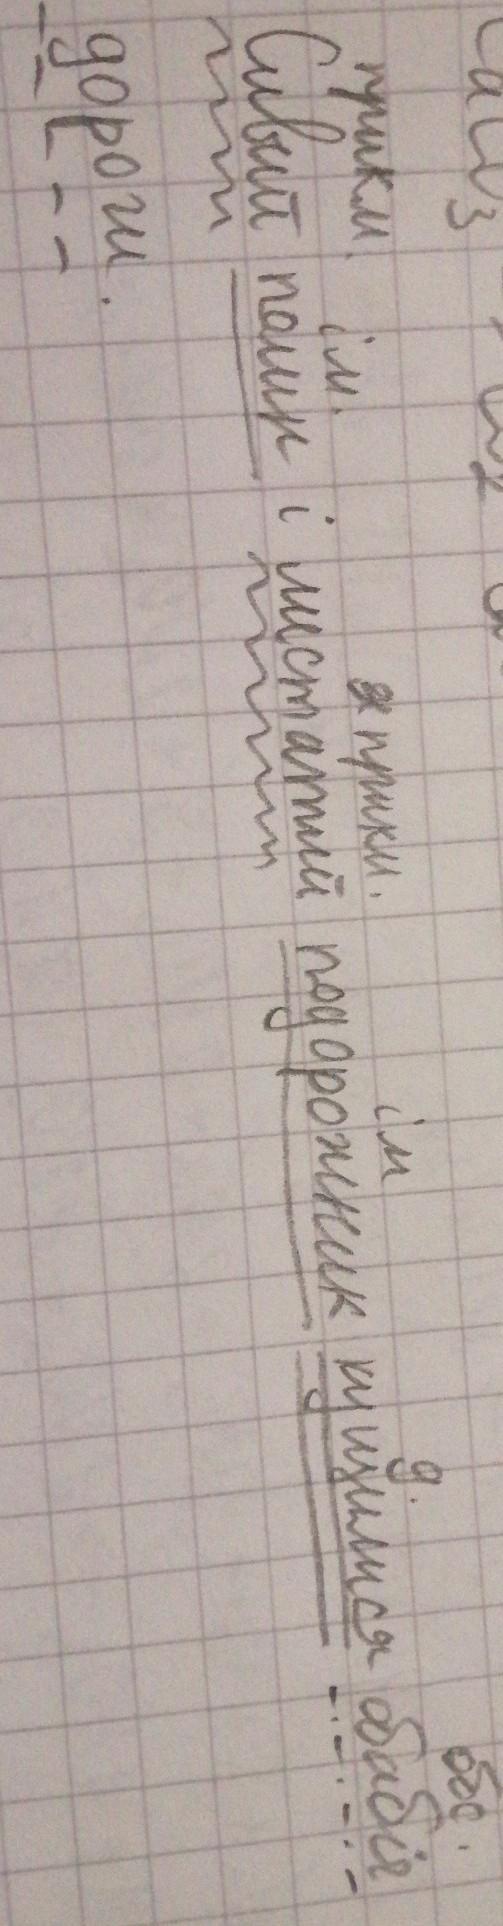 прикм. ім. прикм. ім д. обс.
Сивий полин і листатий подорожник тулилися обабіч
дороги.